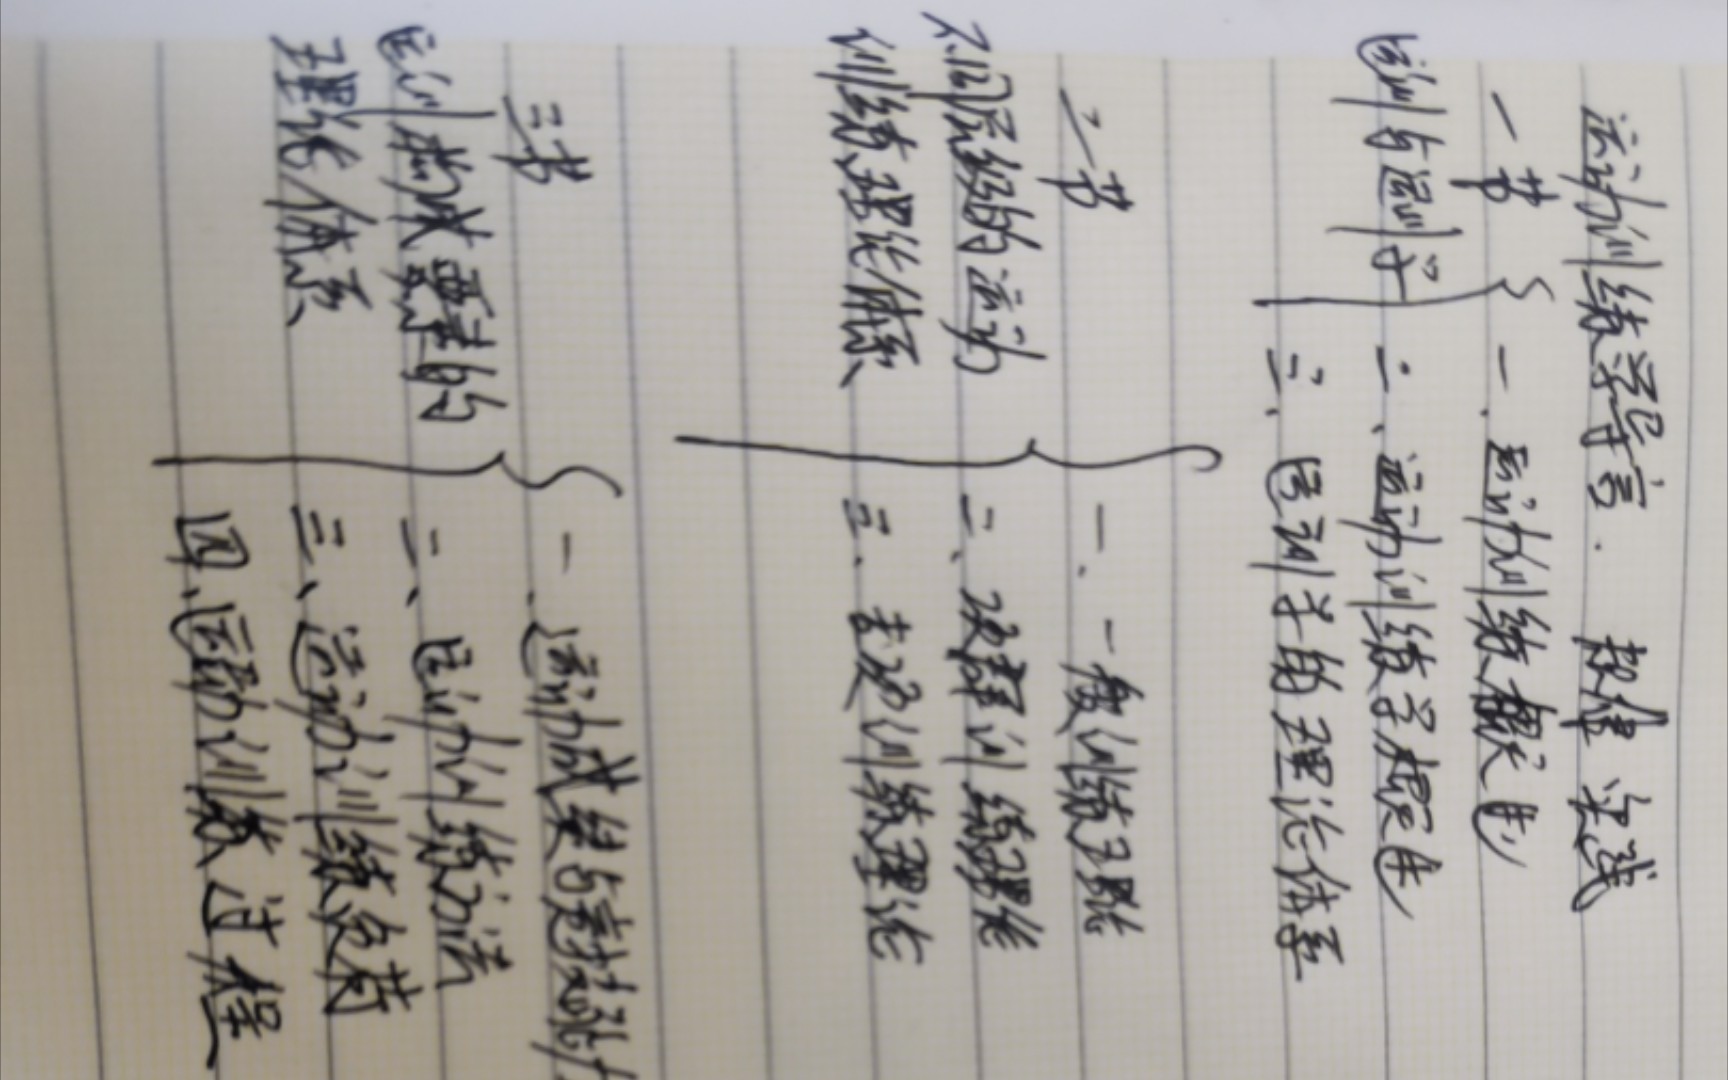 运动训练学导言.
一节
运训与运训学
一、运动训练概述
二、运动训练学概述
三、运训学的理论体系
二节
不同层级的运动
训练理论体系
一、一般训练理论
二、项群训练理论
三、专项训练理论
三节
运训构成要素的
理论体系
一、运动成绩与竞技能力
二、运动训练方法
三、运动训练负荷
四、运动训练过程